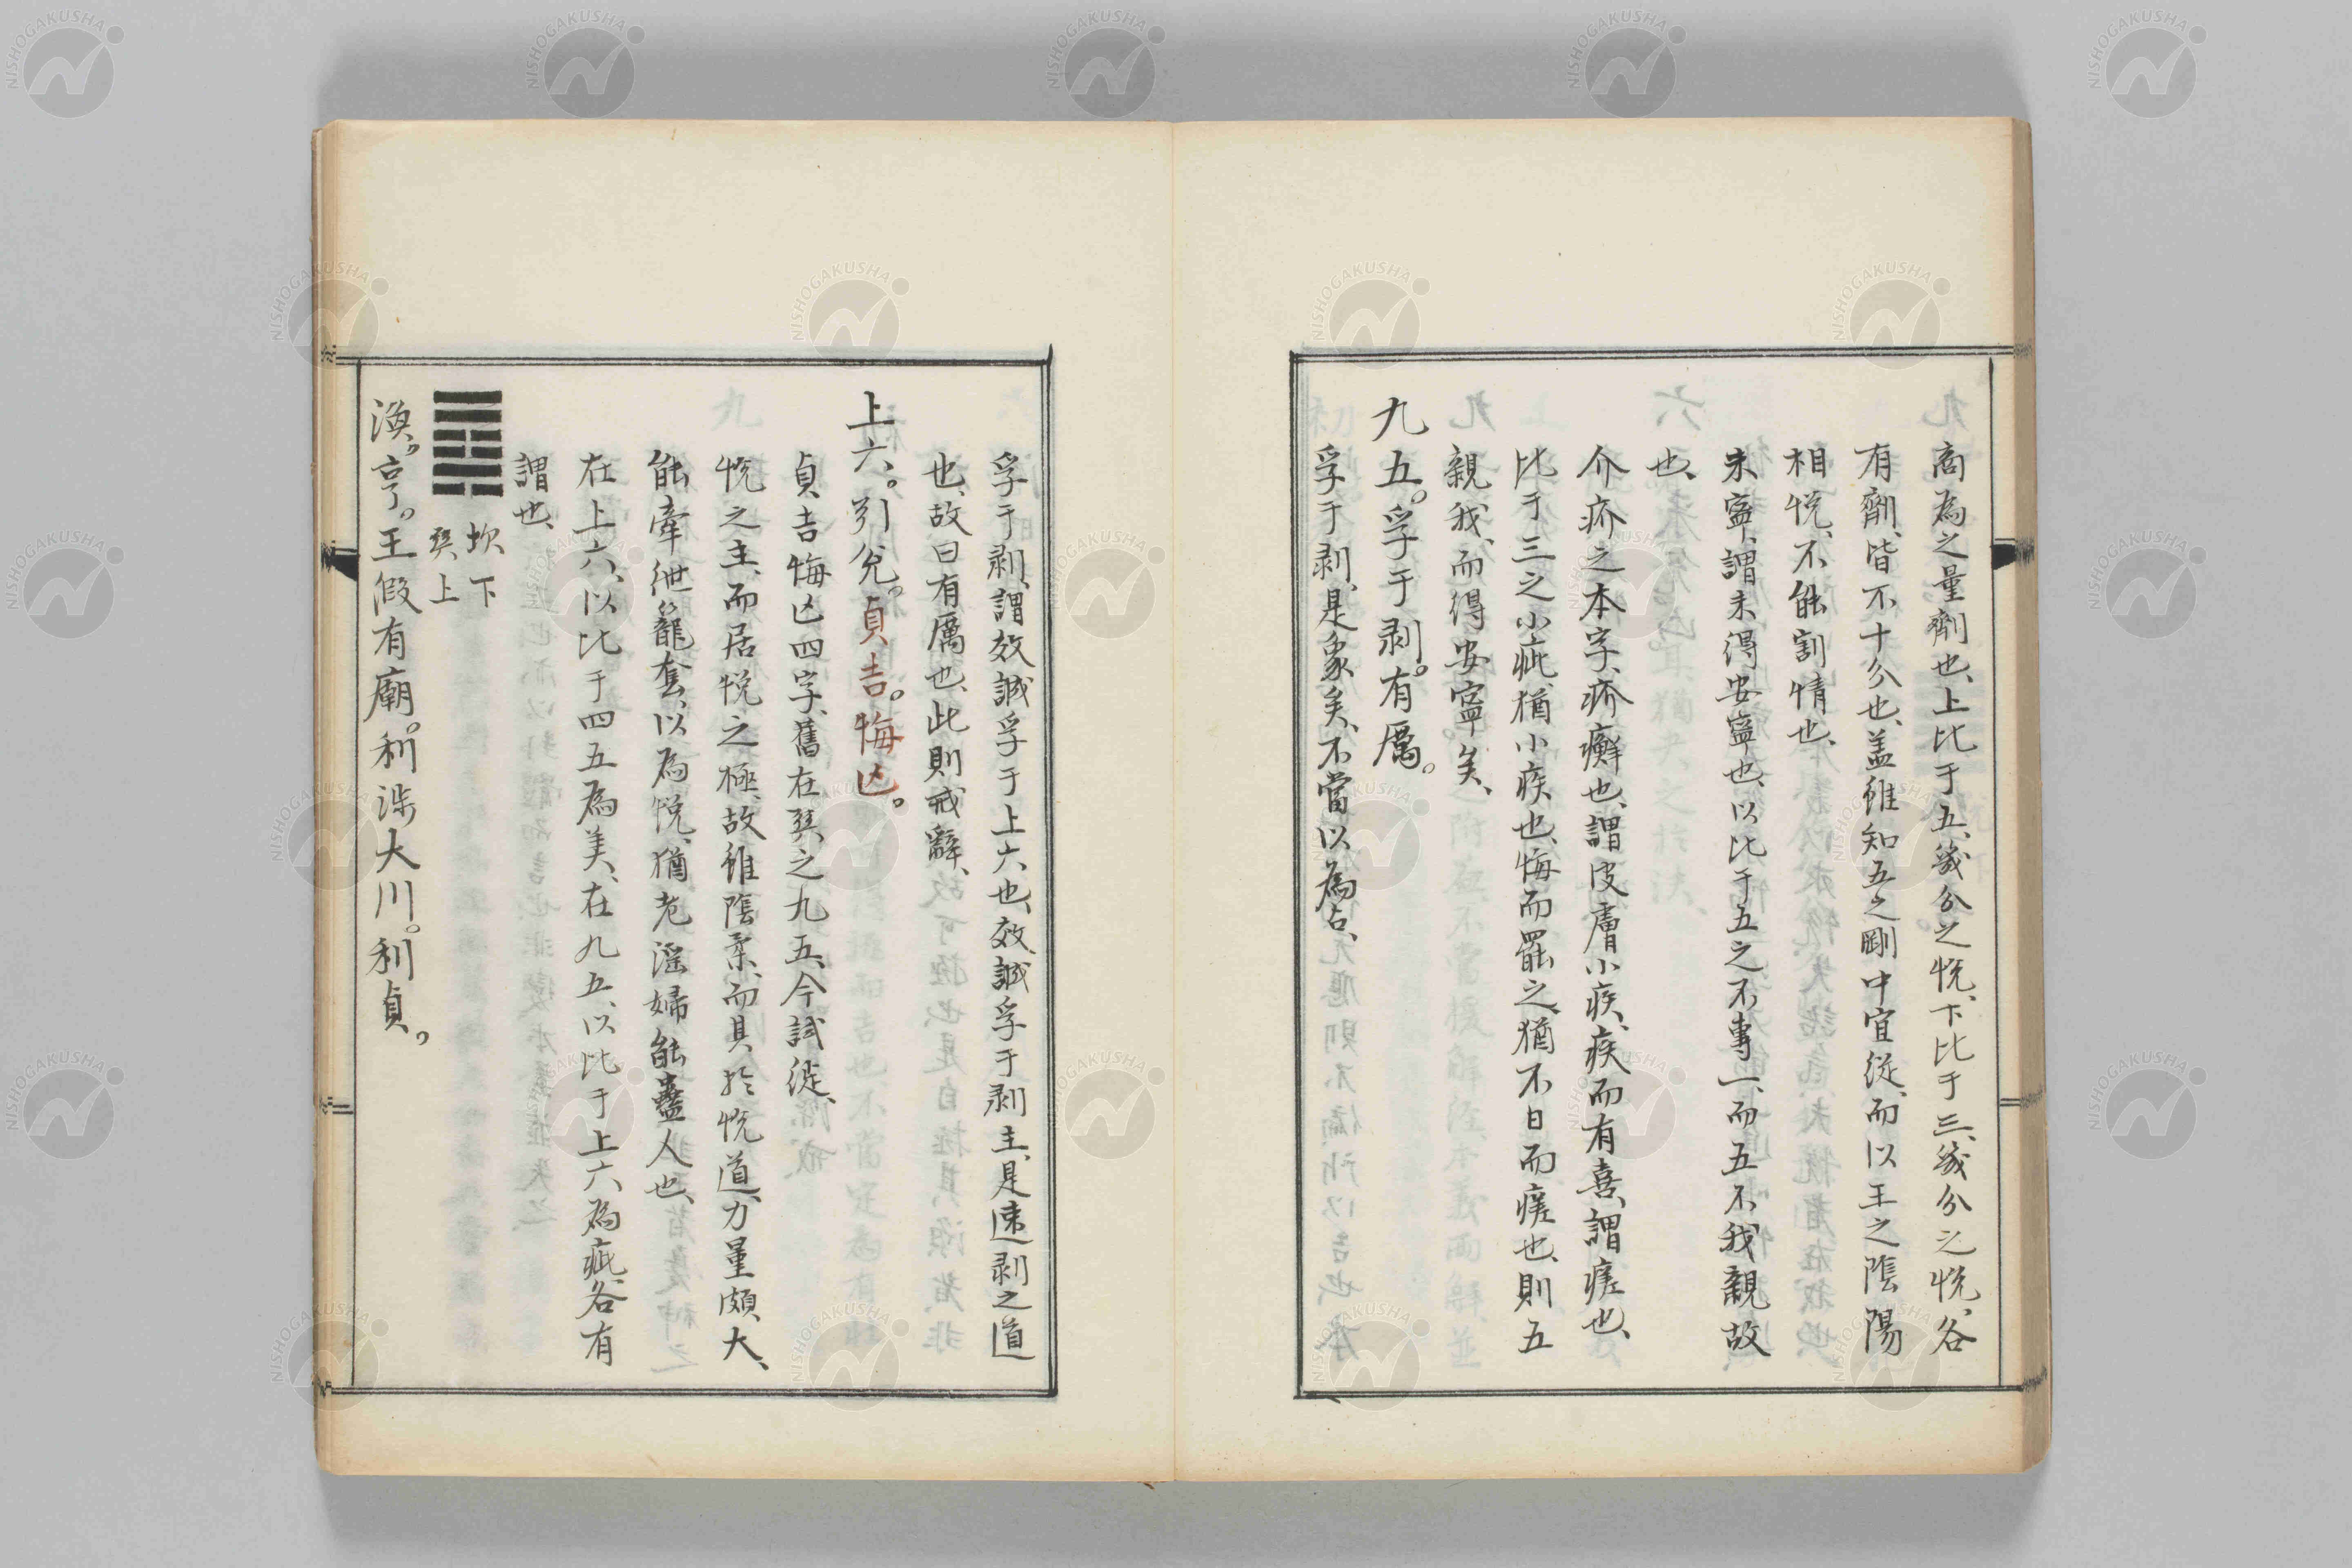 商為之量劑也、上比于五、幾分之悦、下比于三、幾分之悦、各
有劑、皆不十分也、蓋雖知五之剛中宜従、而以王之陰陽
相悦、不能割情也、
未寧、謂未得安寧也、以比于五之不專一、而五不我親故
也、
介疥之本字、疥癬也、謂皮膚小疾、疾而有喜、謂瘥也、
比于三之小疵、猶小疾也、悔而罷之、猶不日而瘥也、則五
親我、而得安寧矣、
九五。孚于剥。有厲。
孚于剥、是象矣、不當以為占、
孚于剥、謂效誠孚于上六也、效誠孚于剥主、是速剥之道
也、故曰有厲也、此則戒辭、
上六。引兌。貞吉。悔凶。
貞吉悔凶四字、舊在巽之九五、今試徙、
悦之主、而居悦之極、故雖陰柔、而其於悦道、力量頗大、
能牽紲籠套、以為悦、猶老淫婦能蠱人也、
在上六、以比于四五為美、在九五、以比于上六為疵、各有
謂也、
坎下
巽上
渙。亨。王假有廟。利渉大川。利貞。
NISHOGAKUSHA